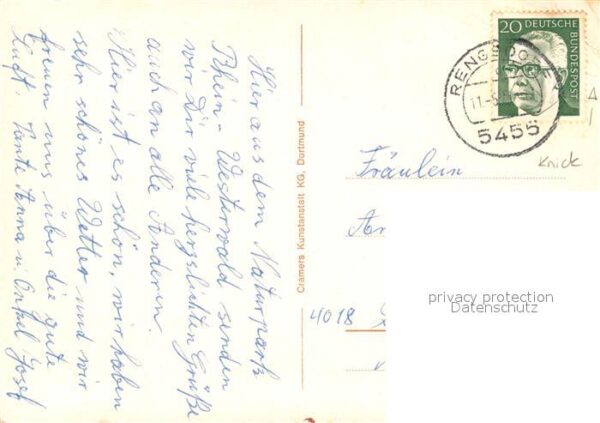 Hier aus dem Naturpark
Rhein-Westerwald senden
wir Dir viele herzlichsten Grüße
auch an alle Anderen.
Hier ist es schön, wir haben
sehr schönes Wetter und wir
freuen uns über die gute
Luft. Tante Anna u. Onkel Josef
Cramers Kunstanstalt KG, Dortmund
20 DEUTSCHE
BUNDESPOST
RENGSDORF
11.-8
5455
Knick
Fräulein
An
4018
privacy protection
Datenschutz